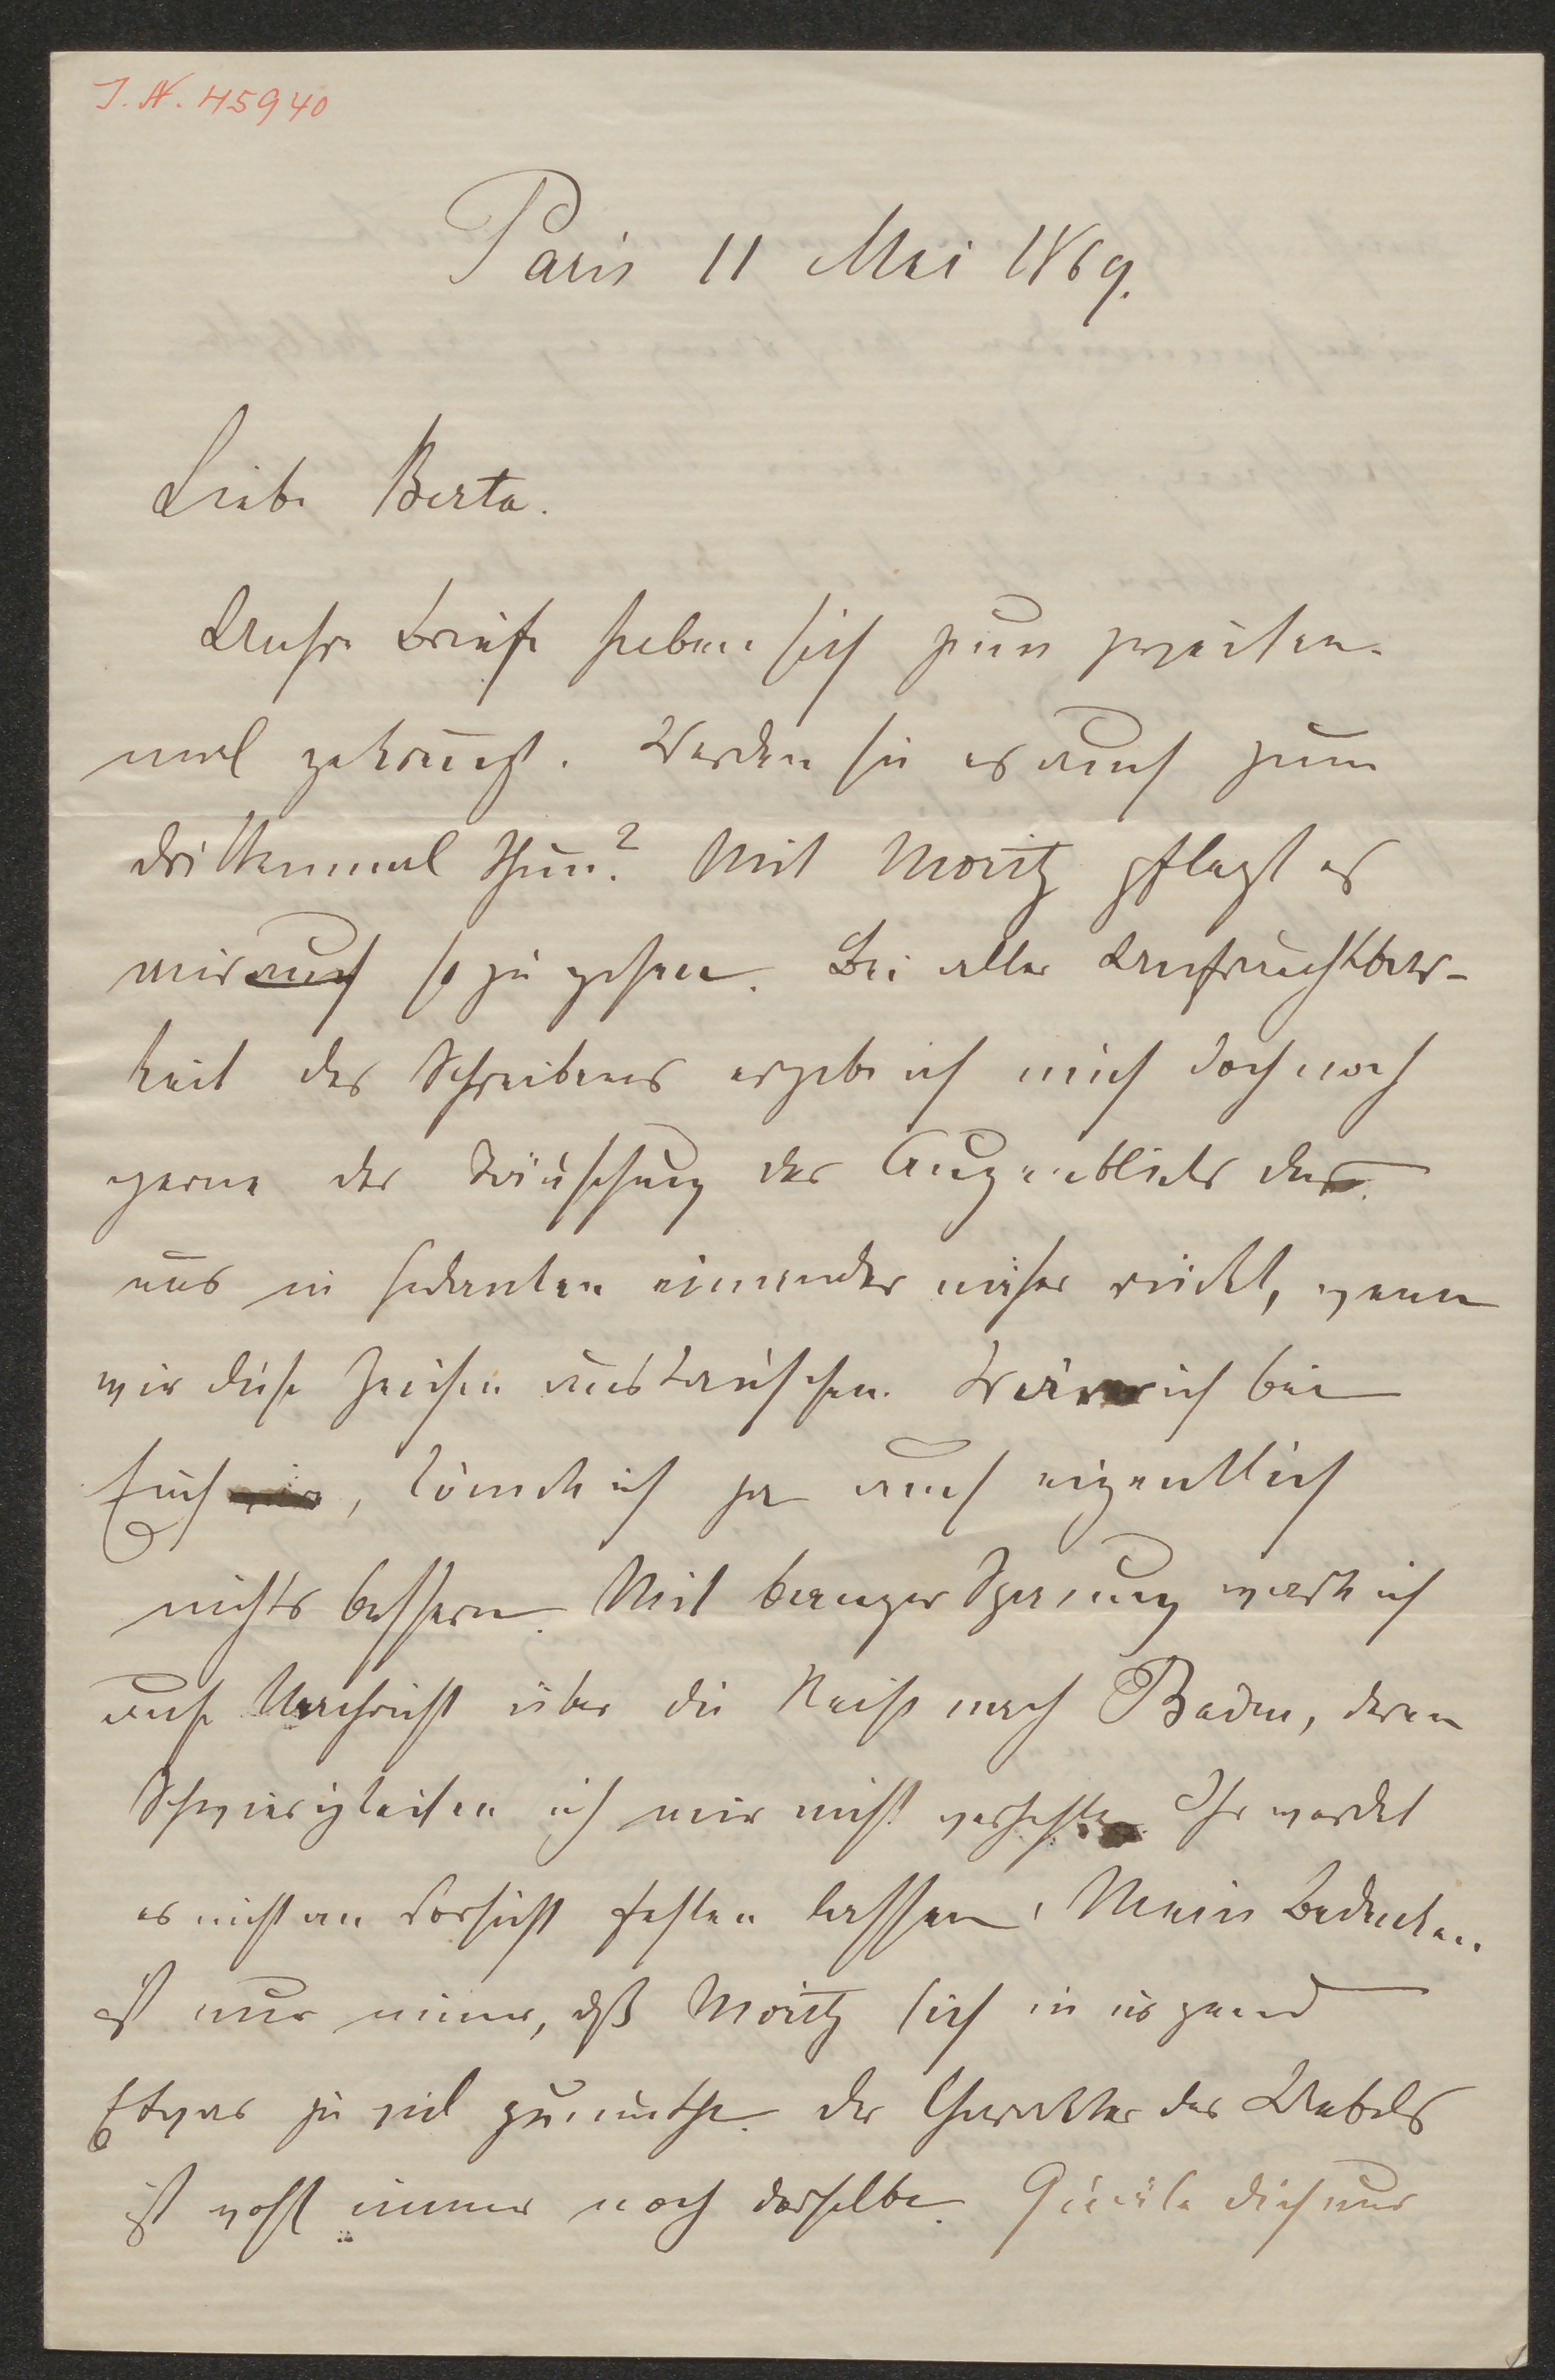 I. N. 45940
Paris 11 Mai 1869.
Liebe Berta.
Unsre Briefe haben sich zum zweiten-
mal gekreuzt. Werden sie es auch zum
drittenmal thun? Mit Moritz pflegt es
mir auch so zu gehen. Bei aller Unfruchtbar-
keit des Schreibens ergebe ich mich doch noch
gerne der Täuschung des Augenblicks der
uns in Gedanken einander näher rückt, wenn
wir diese Zeichen austauschen. Wäre ich bei
Euch, könnte ich ja auch eigentlich
nichts bessern. Mit banger Spannung warte ich
auf Nachricht über die Reise nach Baden, deren
Schwierigkeiten ich mir nicht verhehle. Ihr werdet
es nicht an Vorsicht fehlen lassen. Mein Bedenken
ist nur immer, daß Moritz sich in irgend
Etwas zu viel zumuthe. Der Charakter des Uebels
ist wohl immer noch derselbe. Quäle dich nur